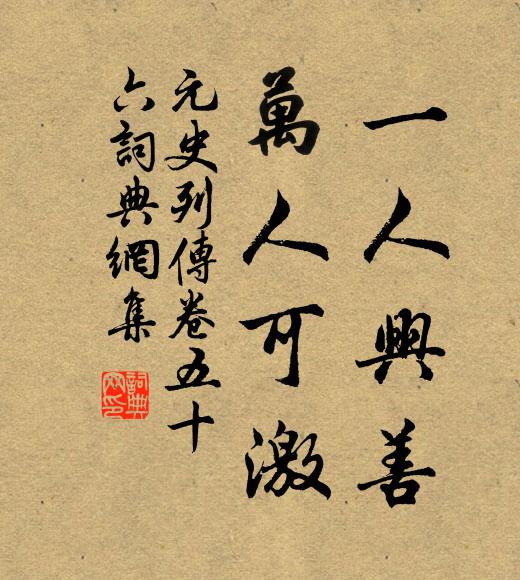 一人興善
萬人可激
元史列傳卷五十
六詞典網集
詞典網印